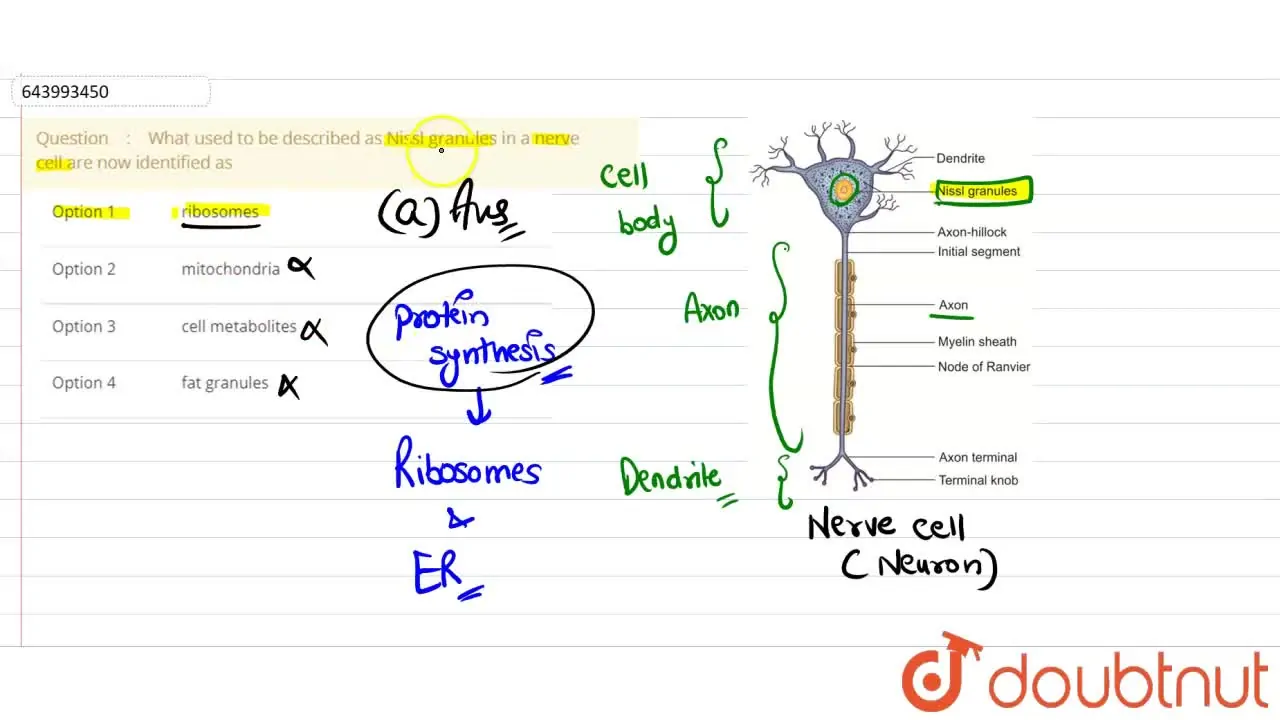 643993450
Question : What used to be described as Nissl granules in a nerve
cell are now identified as
Option 1 ribosomes
Option 2 mitochondria
Option 3 cell metabolites
Option 4 fat granules
(a) Ans
Protein
synthesis
Ribosomes
&
ER
Cell
body
Axon
Dendrite
Dendrite
Nissl granules
Axon-hillock
Initial segment
Axon
Myelin sheath
Node of Ranvier
Axon terminal
Terminal knob
Nerve cell
(Neuron)
doubtnut